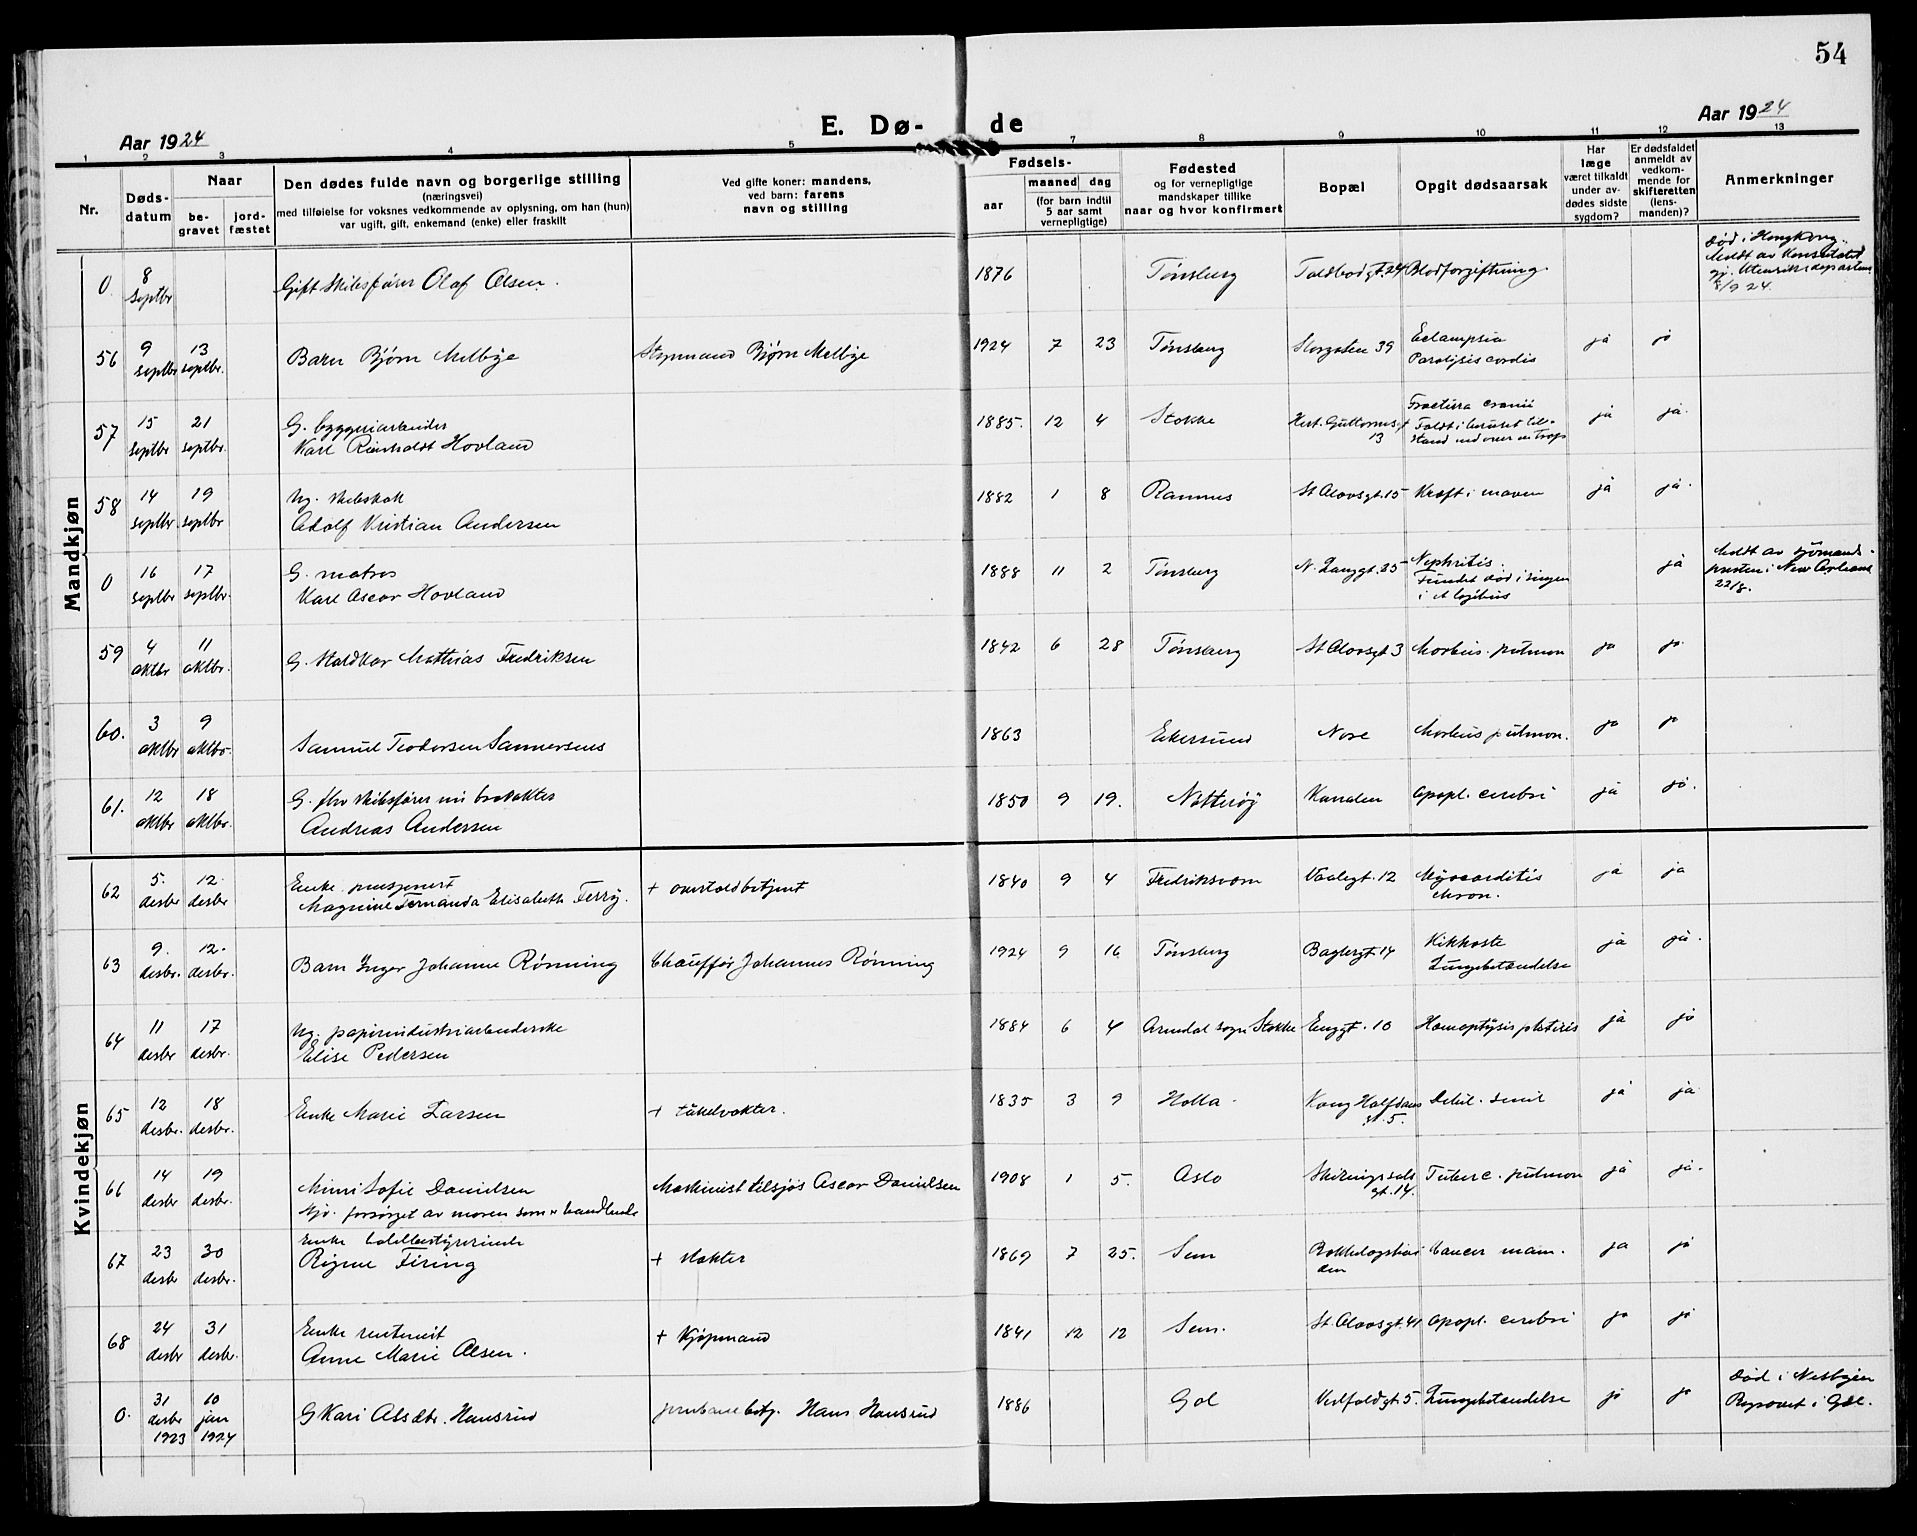 54
Aar 1924
E. Dø-
de
Aar 1924
1 2 3 4 5 7 8 9 10 11 12 13
Nr.
Døds-
datum
Naar
be-
gravet
jord-
fæstet
Den dødes fulde navn og borgerlige stilling
(næringsvei)
med tilføielse for voksnes vedkommende av oplysning, om han (hun)
var ugift, gift, enkemand (enke) eller fraskilt
Ved gifte koner: mandens,
ved barn: farens
navn og stilling
Fødsels-
aar
maaned dag
(for barn indtil
5 aar samt
vernepligtige)
Fødested
og for vernepligtige
mandskaper tillike
naar og hvor konfirmert
Bopæl
Opgit dødsaarsak
Har
læge
været tilkaldt
under av-
dødes sidste
sygdom?
Er dødsfaldet
anmeldt av
vedkom-
mende for
skifteretten
(lens-
manden)?
Anmerkninger
Mandkjøn
0 8 septbr Gift Skibsfører Olaf Olsen. 1876 Tønsberg Toldbodgt. 24 Blodforgiftning.
død i Hongkong.
Meldt av Konsulatet
gj. Utenriksdepartem
8/9 24.
56 9 septbr 13 septbr. Barn Bjørn Melbye Styrmand Bjørn Melbye 1924 7 23 Tønsberg Storgaten 39 Eclampsia
Paralysis cordis ja ja
57 15 septbr 21 septbr. G. byggeriarbeider
Karl Reinholdt Hovland 1885. 12 4 Stokke Hert. Guttormsgt
13 Fractura cranii
Faldt i beruset til-
stand ned over en trap ja ja.
58 14 septbr. 19 septbr Ug. skibskok
Adolf Kristian Andersen 1882 1 8 Ramnes St Olavsgt. 15 Kræft i maven ja ja.
0 16 septbr 17 septbr. G. matros
Karl Oscar Hovland 1888 11 2 Tønsberg N. Langgt. 25 Nephritis.
Fundet død i sengen
i et logihus ja
Meldt av sjømands-
presten i New Orleans
22/8.
59 4 oktbr 11 oktbr. G. Staldkar Mathias Fredriksen 1842 6 28 Tønsberg St Olavsgt 3 Morbus. pulmon ja ja.
60. 3 oktbr 9 oktbr. Samuel Teodorsen Sannersens 1863 Ekersund Nore Morbus pulmon. ja ja
61. 12 oktbr 18 oktbr. G. fhv skibsfører nu brovakter
Andreas Andersen 1850 9 19. Nøtterøy Kanalen Apopl. cerebri ja ja.
Kvindekjøn
62 5. desbr 12. desbr Enke. pensjonert
Magnine Fernanda Elisabeth Ferry. + overtoldbetjent 1840 9 4 Fredriksværn Vaalegt. 12 Myocarditis
chron. ja ja
63 9. desbr. 12. desbr. Barn Inger Johanne Rønning Chauffør Johannes Rønning 1924 9 16 Tønsberg Baglergt. 14 Kikhoste
Lungebetændelse ja ja.
64 11 desbr 17 desbr. Ug. papirindustriarbeiderske
Elise Pedersen 1884 6 4 Arendal sogn Stokke Enggt. 10 Hæmoptysis phtisis ja ja
65 12 desbr. 18 desbr. Enke Marie Larsen + tåkelvakter. 1835 3 9 Holla. Kong Halfdans
gt. 5. Debil. senil ja ja
66 14 desbr 19 desbr. Mimi Sofie Danielsen
Ug. forsørget av moren som er Maskinist tilsjøs Oscar Danielsen 1908 1 5. Oslo Skiringssals
gt. 14. Tuberc. pulmon ja ja.
67 23 desbr 30 desbr. Enke hotelbestyrerinde
Rigine Firing + slakter 1869 7 25. Sem Cancer mam. ja ja
68 24 desbr 31 desbr. Enke rentenist
Anne Marie Olsen. + Kjøpmand 1841 12 12 Sem. St. Olavsgt. 41 Apopl. cerebri ja ja
0. 31 desbr 1923 10 jan 1924 G Kari Olsdtr. Hansrud jernbanebetj. Hans Hansrud 1886 Gol Vestfoldgt. 5. Lungebetændelse ja ja
død i Nesbyen
Begravet i Gol.